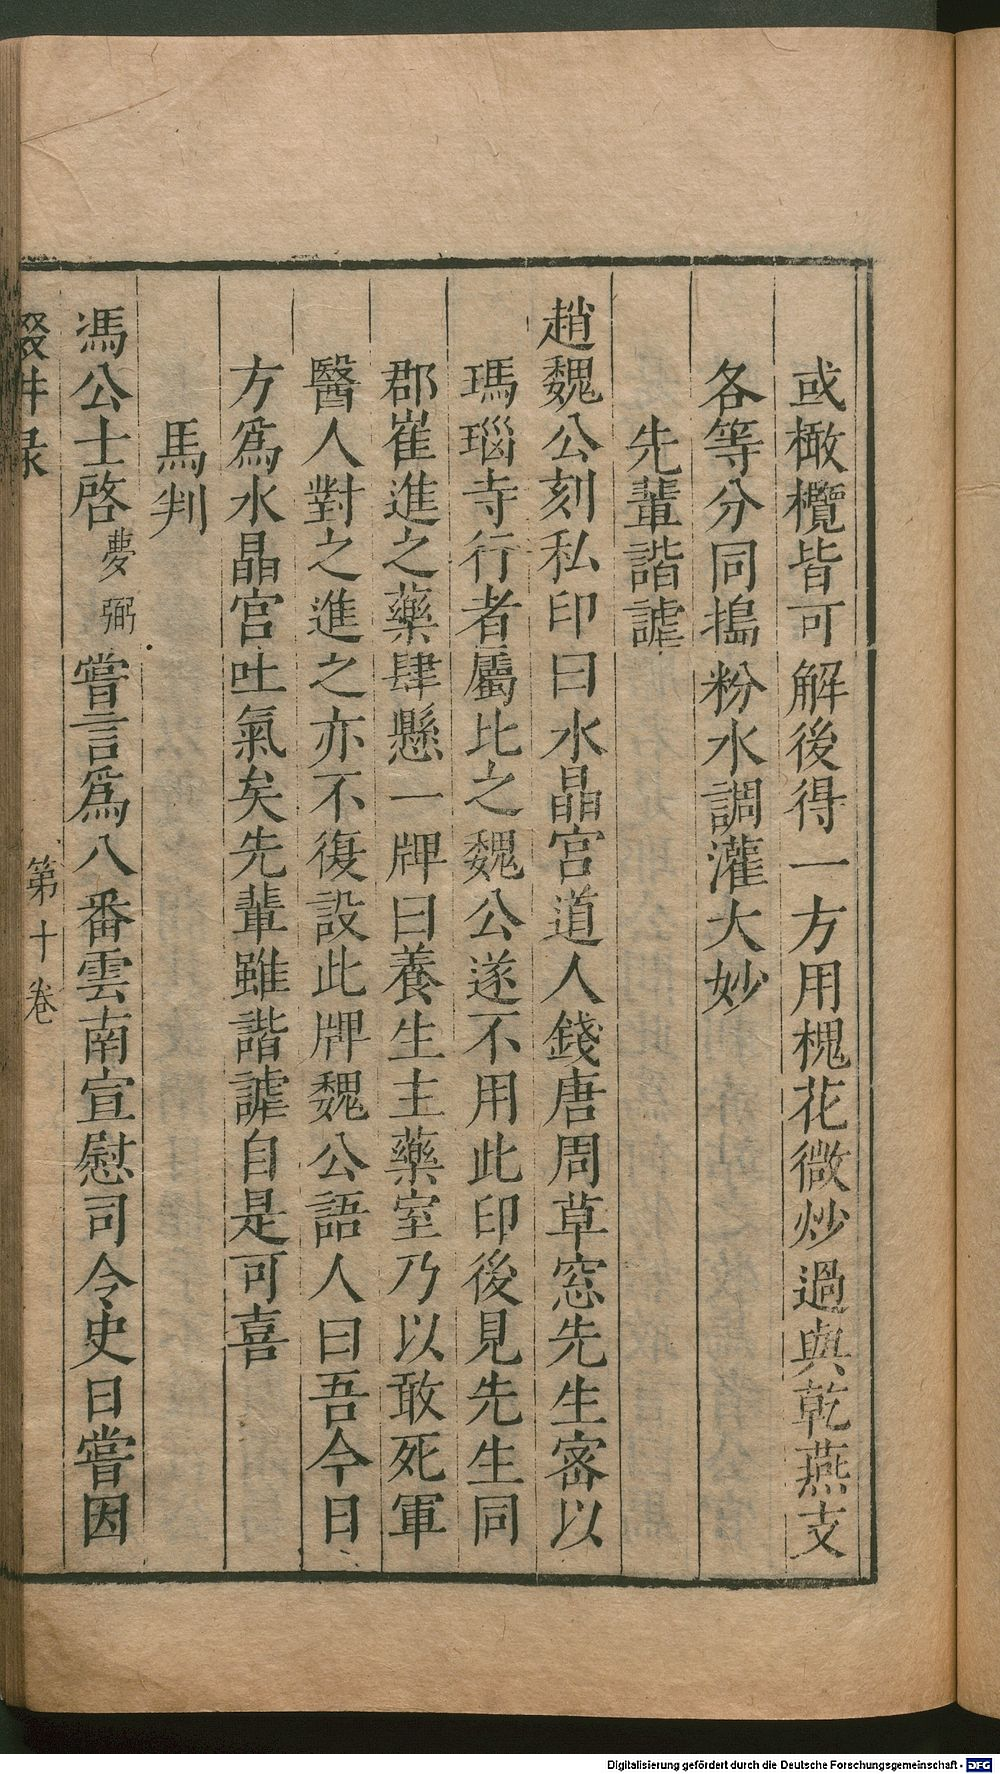 或橄欖皆可解後得一方用槐花微炒過與乾燕支
各等分同搗粉水調灌大妙
先輩諧謔
趙魏公刻私印曰水晶宮道人錢唐周草窓先生密以
瑪瑙寺行者屬比之魏公遂不用此印後見先生同
郡崔進之藥肆懸一牌曰養生主藥室乃以敢死軍
醫人對之進之亦不復設此牌魏公語人曰吾今日
方爲水晶宮吐氣矣先輩雖諧謔自是可喜
馬判
馮公士啓夢弼嘗言爲八番雲南宣慰司令史日嘗因
第十卷
Digitalisierung gefördert durch die Deutsche Forschungsgemeinschaft - DFG